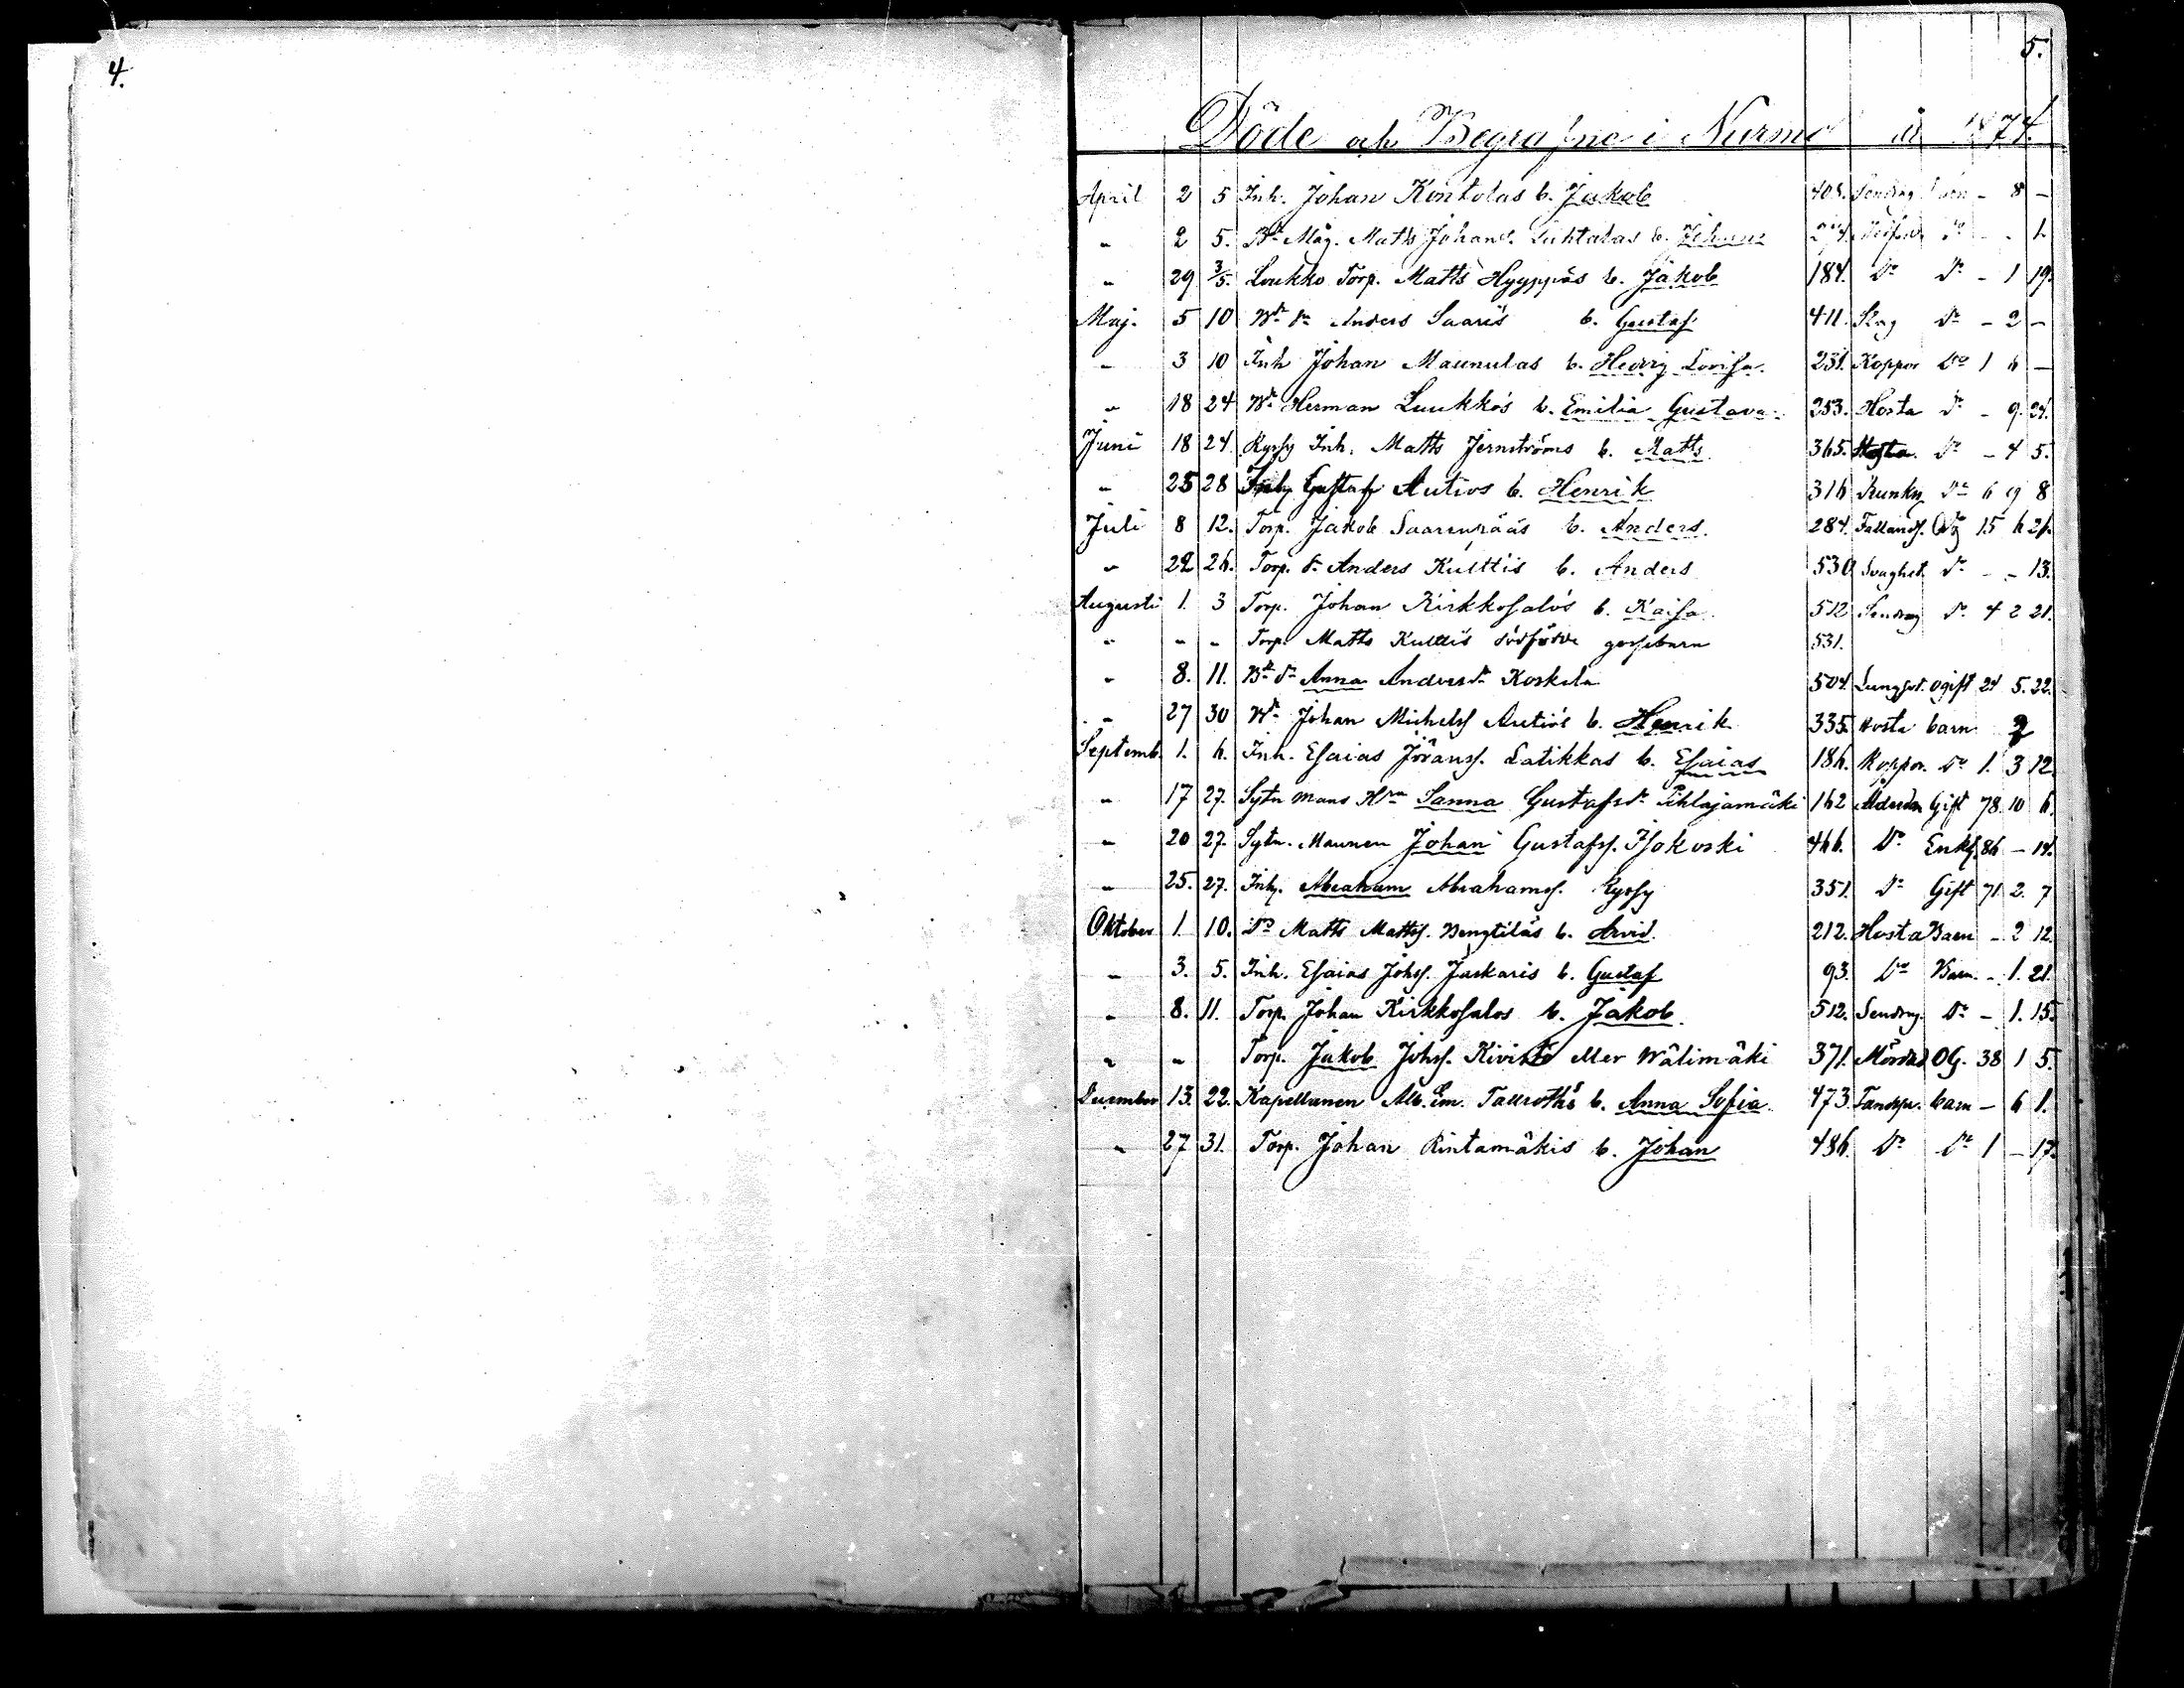 4.
5.
Döde och Begrafne i Nurmo år 1874.
April 2 5 Inh. Johan Kontolas b. Jakob 408. barn - 8 -
" 2 5. Måg. Matts Johans. Luhtalas b. Johan Dº - - 1.
" 29 3/5. Loukko Torp. Matts Hyyppäs b. Jakob 184. Dº Dº - 1 19.
Maj. 5 10 Anders Saaris b. Gustaf 411. Slag Dº - 2 -
" 3 10 Inh Johan Maunulas b. Hedvig Lovisa. 231. Koppor Dº 1 6 -
" 18 24 Herman Luukkos b. Emilia Gustava. 253. Hosta Dº - 9. 24.
Juni 18 24. Kyrsy Inh. Matts Jernströms b. Matts. 365. Hosta. Dº - 4 5.
" 25 28 Inh Gustaf Autios b. Henrik 316 Dº 6 9 8
Juli 8 12. Torp. Jakob Saarenpääs b. Anders. 284. Fallands. 15 6 21.
" 22 26. Torp. Anders Kulttis b. Anders 530 Svaghet. Dº - - 13.
Augusti 1. 3 Torp. Johan Kirkkosalos b. Kaisa. 512 Sendrag Dº 4 2 21.
" " " Torp. Matts Kulttis dödfödde gossebarn 531.
" 8. 11. Anna Andersdr Koskela 504. Lungsot. Ogift 24 5. 22.
" 27 30 Johan Michelss Autiös b. Henrik 335. Hosta barn 2
Septemb. 1. 6. Inh. Esaias Jöranss. Latikkas b. Esaias 186. Koppor. Dº 1. 3 12.
" 17 27. Sytn mans Hru Sanna Gustafsdr Pihlajamäki 162 Ålderdom Gift 78. 10 6.
" 20 27. Sytn. Mannen Johan Gustafss. Isokoski 466. Dº Enkl. 86 - 14.
" 25. 27. Inh. Abraham Abrahamss. Kyrsy 351. Dº Gift 71. 2. 7
Oktober 1. 10. Dº Matts Mattss. Bengtiläs b. Arvid. 212. Hosta Barn - 2 12.
" 3. 5. Inh. Esaias Johss. Juskaris b. Gustaf 93. Dº Barn. - 1. 21.
" 8. 11. Torp. Johan Kirkkosalos b. Jakob. 512. Sendrag. Dº - 1. 15.
" " Torp. Jakob Johss. Kivistö eller Wälimäki 371. Mördad OG. 38 1 5.
December 13. 22. Kapellanen Alb. Em. Tallroths b. Anna Sofia. 473. Tandspr. barn - 6 1.
" 27 31. Torp. Johan Rintamäkis b. Johan 486. Dº Dº 1 - 17.